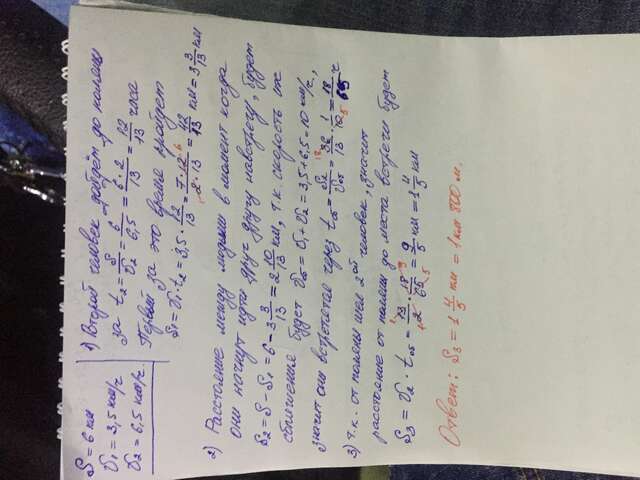 S = 6 км
V1 = 3,5 км/ч
V2 = 6,5 км/ч.
1) Второй человек дойдёт до поляны
за t2 = S/V2 = 6/6,5 = 6·2/13 = 12/13 часа
Первый за это время пройдет
S1 = V1 · t2 = 3,5 · 12/13 = 7·12 6/2·13 1 = 42/13 км = 3 3/13 км
2) Расстояние между людьми в момент когда
они начнут идти друг другу навстречу, будет
S2 = S - S1 = 6 - 3 3/13 = 2 10/13 км, т.к. скорость их
сближения будет Vоб = V1 + V2 = 3,5 + 6,5 = 10 км/ч.,
значит они встретятся через tоб = S2/Vоб = 36 18/13 · 1/10 5 = 18/65 ч
3) т.к. от поляны шел 2ой человек, значит
расстояние от поляны до места встречи будет
S3 = V2 · tоб = 13 1/2 1 · 18 9/65 5 = 9/5 км = 1 4/5 км
Ответ: S3 = 1 4/5 км = 1 км 800 м.